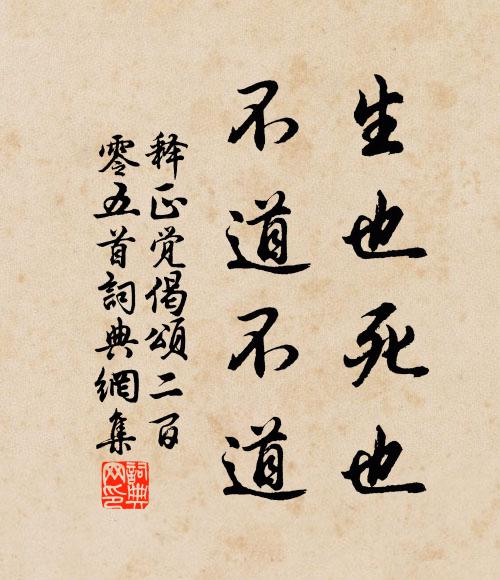 生也死也
不道不道
释正觉偈頌二百
零五首詞典網集
詞典
网印